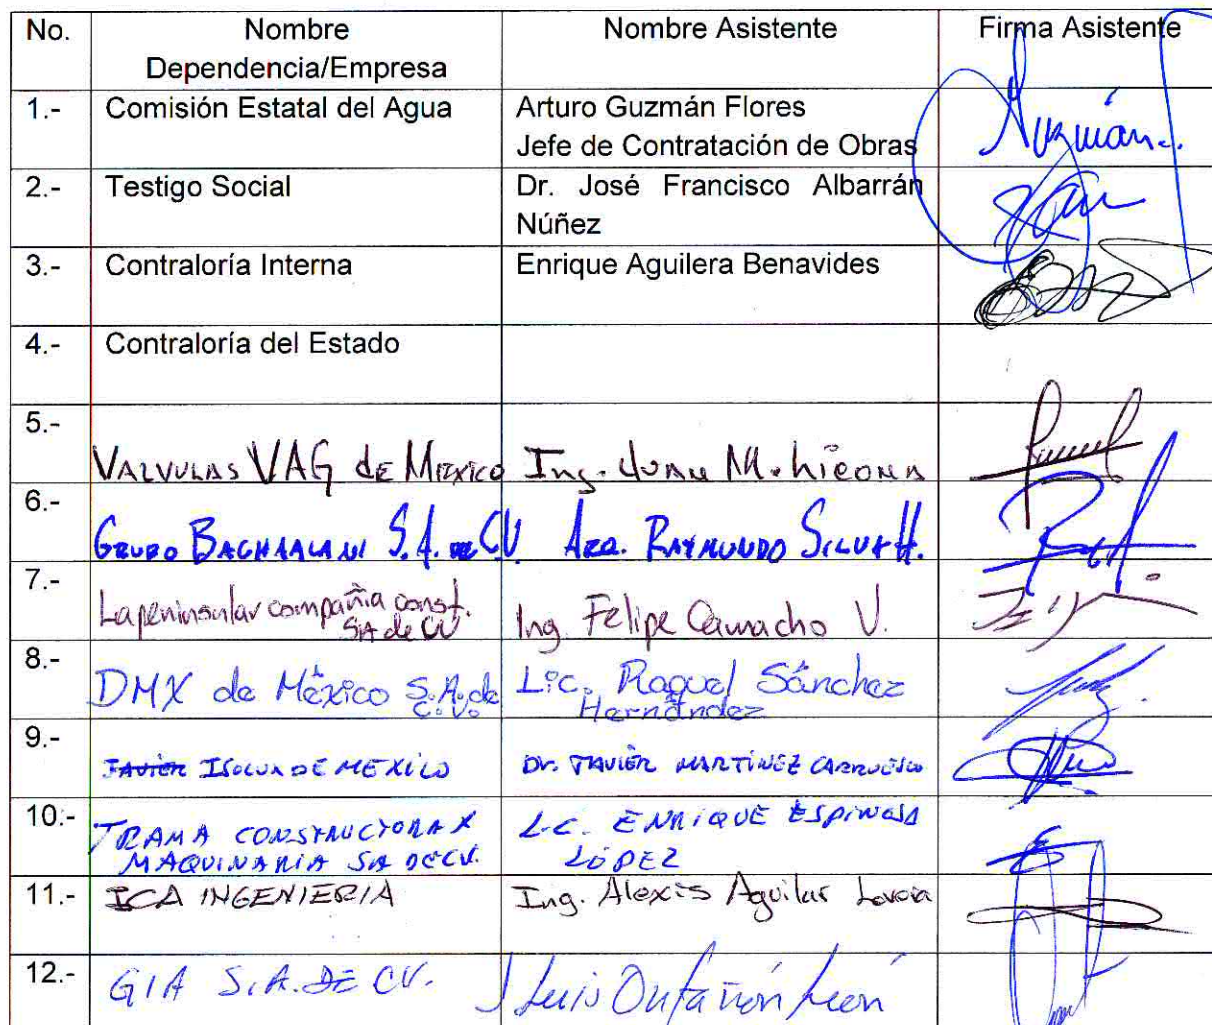 No. Nombre Dependencia/Empresa Nombre Asistente Firma Asistente
1.- Comisión Estatal del Agua Arturo Guzmán Flores
Jefe de Contratación de Obras
2.- Testigo Social Dr. José Francisco Albarrán
Núñez
3.- Contraloría Interna Enrique Aguilera Benavides
4.- Contraloría del Estado
5.- VALVULAS VAG de MEXICO Ing. Juan M.
6.- GRUPO S.A. DE CV Arq. RAYMUNDO SILVA H.
7.- La peninsular compañia const.
SA de CV
Ing. Felipe Camacho V.
8.- DMX de México S.A. de
C.V.
Lic. Raquel Sánchez
Hernández
9.- ISOLUX DE MEXICO Dr. JAVIER MARTÍNEZ
10.- TRAMA CONSTRUCTORA Y
MAQUINARIA SA DE CV.
L.C. ENRIQUE ESPINOSA
LÓPEZ
11.- ICA INGENIERIA Ing. Alexis Aguilar
12.- GIA S.A. DE CV. J Luis Ontañón León